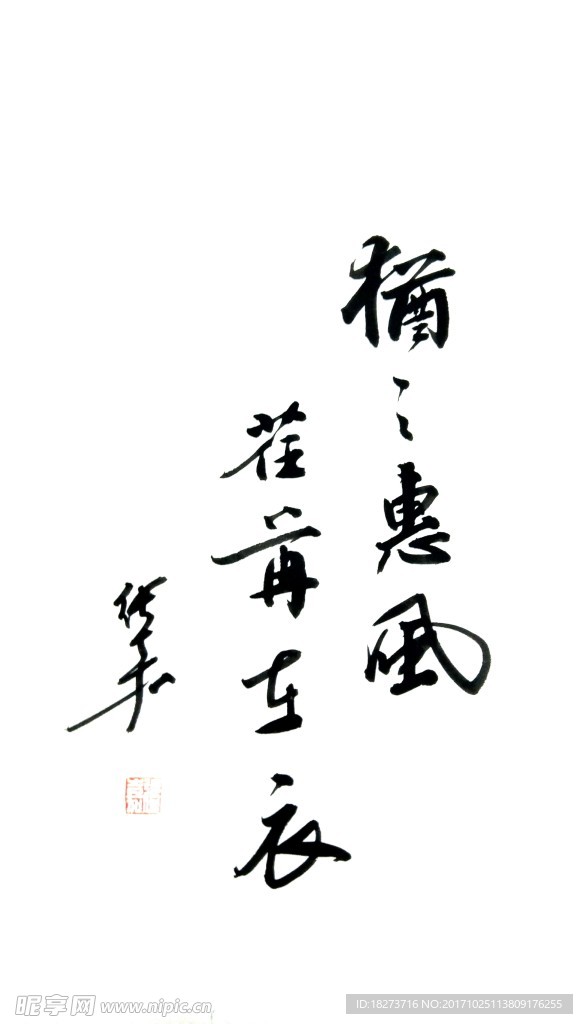 猶之惠風
荏苒在衣
昵享网 www.nipic.cn
ID:18273716 NO:20171025113809176255